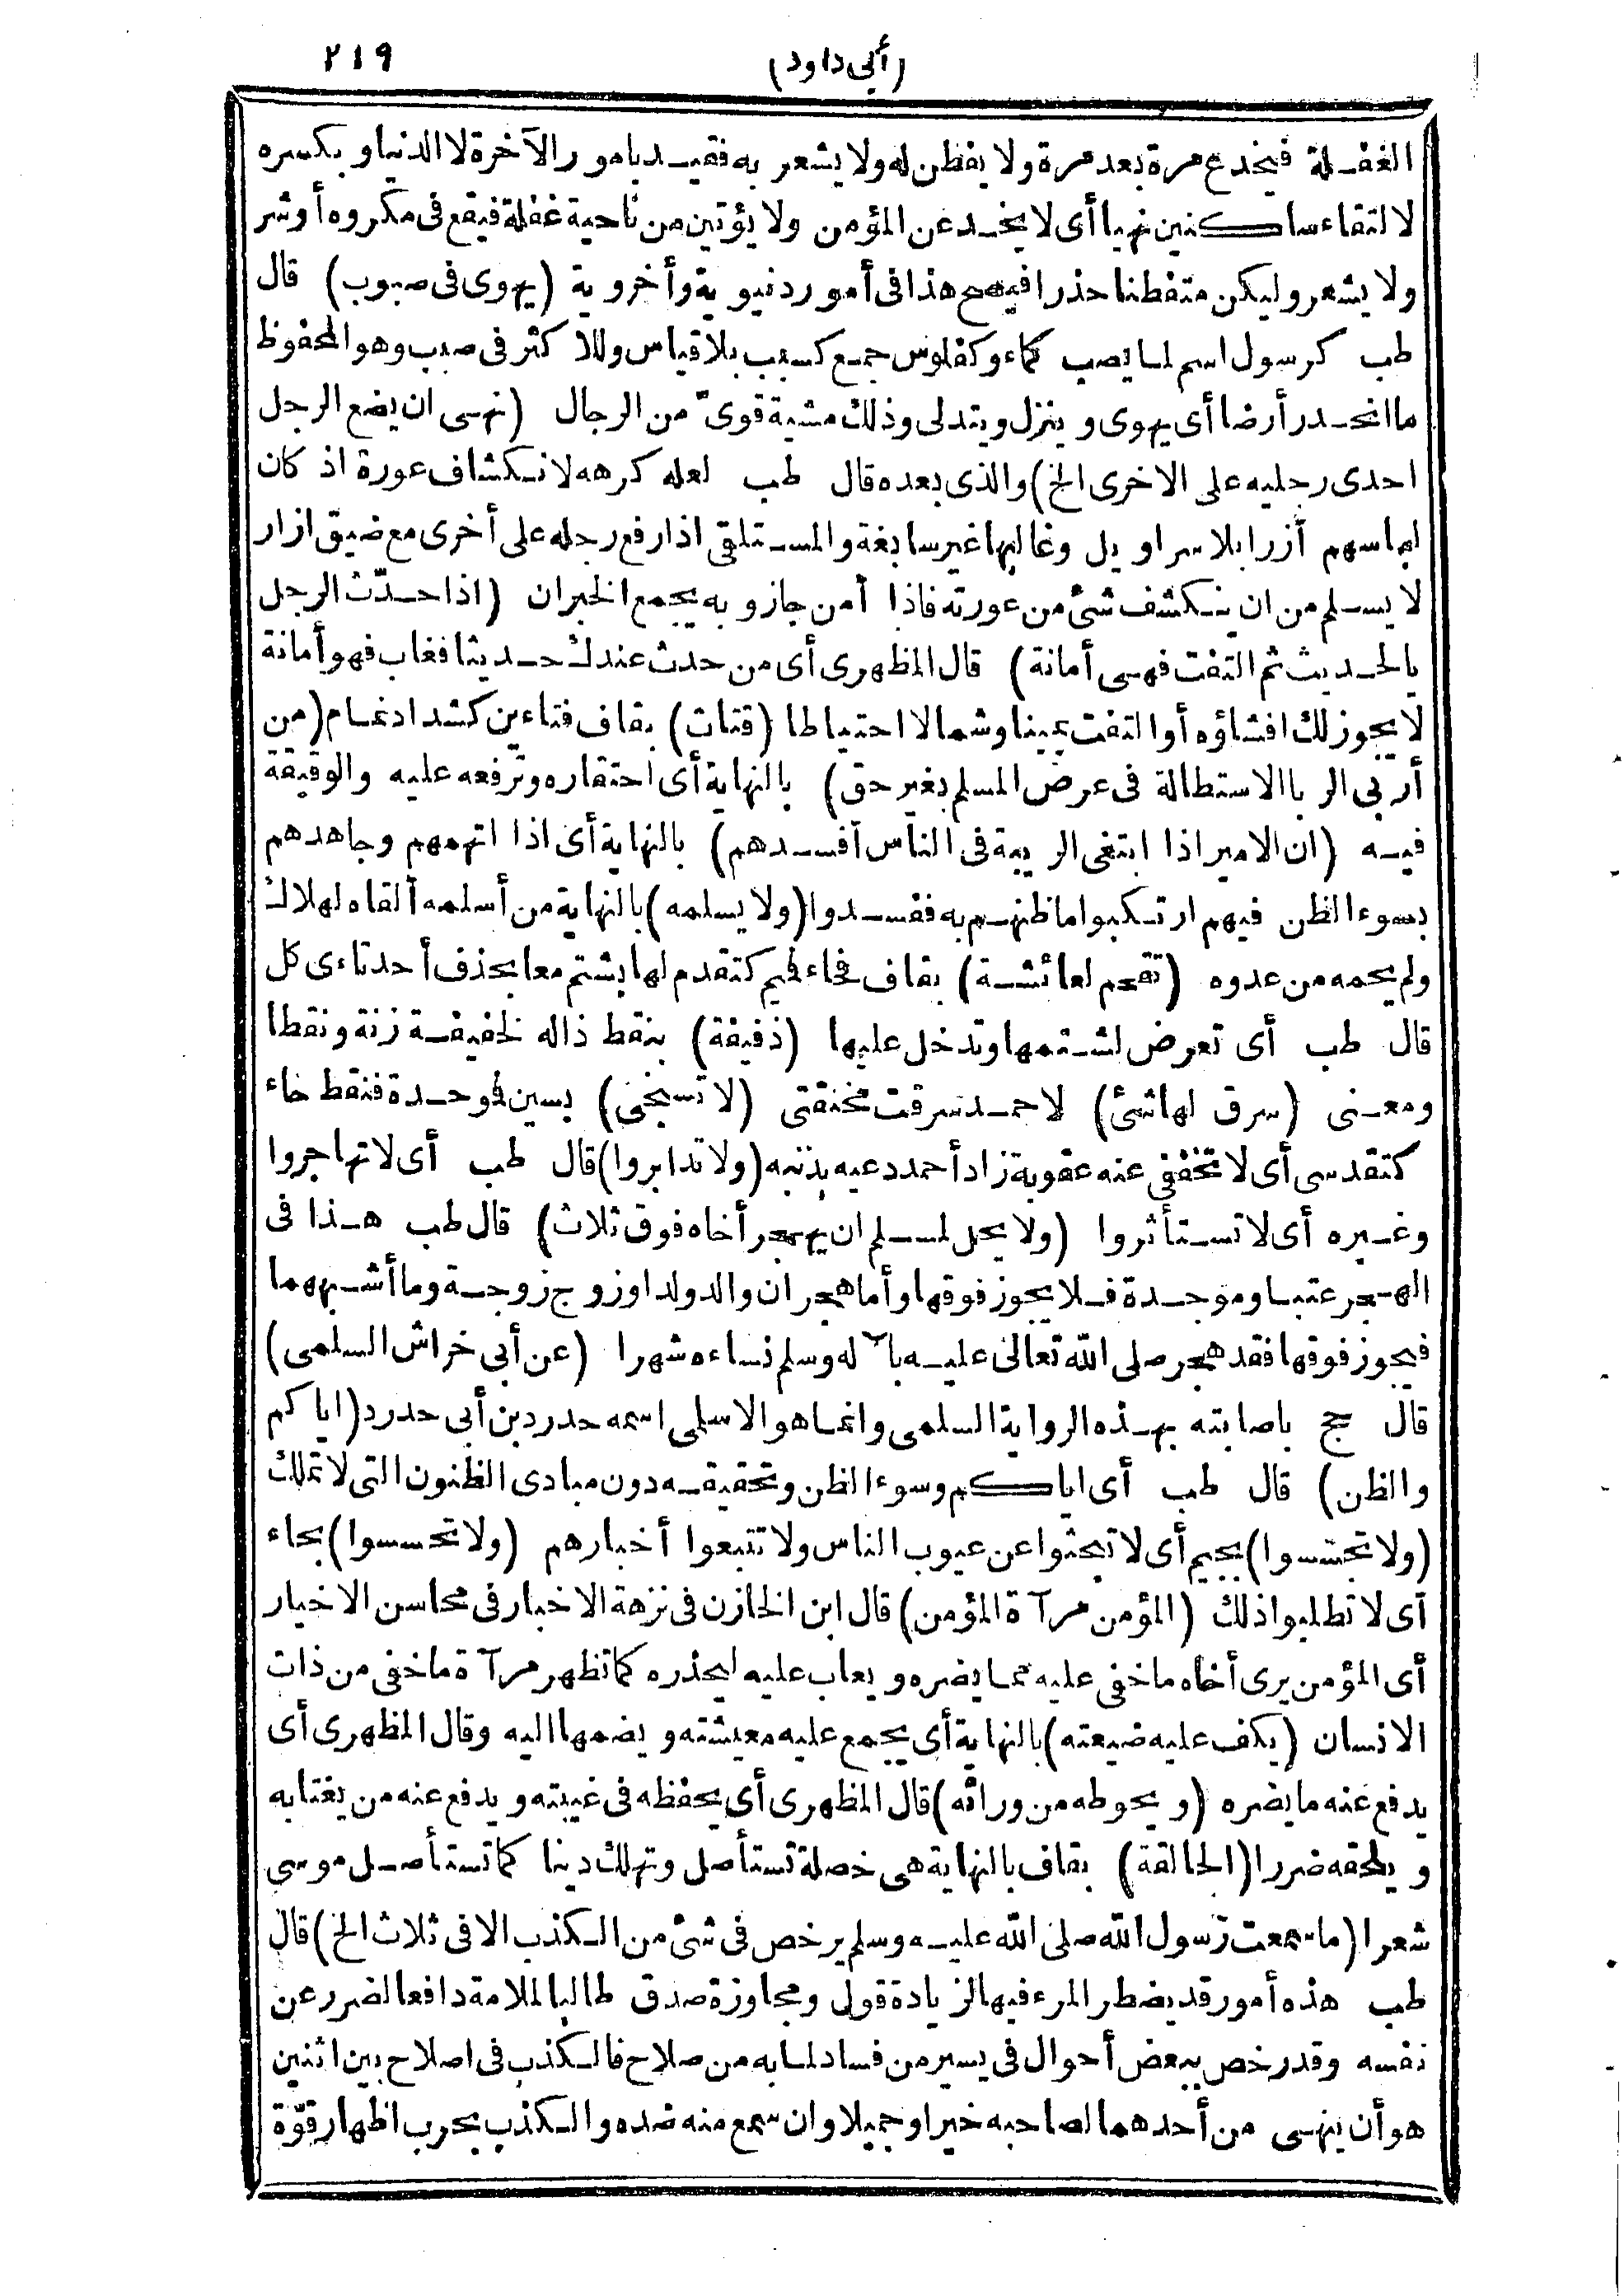 (أبى داود) ٢١٩
الغفلة فيخدع مرة بعد مرة ولا يفطن له ولا يشعر به فقيد بامور الآخرة لا الدنيا وبكسره
لالتقاء ساكنين نهيا أى لا يخدعن المؤمن ولا يؤتين من ناحية غفلة فيقع فى مكروه أو شر
ولا يشعر وليكن متفطنا حذرا فيصح هذا فى أمور دنيوية وأخروية (يهوى فى صبوب) قال
طب كرسول اسم لما يصب كماء وكفلوس جمع كسبب بلا قياس وللاكثر فى صبب وهو المحفوظ
ما انحدر أرضا أى يهوى وينزل ويتدلى وذلك مشية قوىّ من الرجال (نهى ان يضع الرجل
احدى رجليه على الاخرى الخ) والذى بعده قال طب لعله كرهه لانكشاف عورة اذ كان
لباسهم أزرا بلا سراويل وغالبها غير سابغة والمستلقى اذا رفع رجله على أخرى مع ضيق ازار
لا يسلم من ان ينكشف شئ من عورته فاذا أمن جاز وبه يجمع الخبران (اذا حدّث الرجل
بالحديث ثم التفت فهى أمانة) قال المظهرى أى من حدث عندك حديثا فغاب فهو أمانة
لا يجوز لك افشاؤه أو التفت يمينا وشمالا احتياطا (قتات) بقاف فتاءين كشداد نمام (من
أربى الربا الاستطالة فى عرض المسلم بغير حق) بالنهاية أى احتقاره وترفعه عليه والوقيقة
فيه (ان الامير اذا ابتغى الريبة فى الناس أفسدهم) بالنهاية أى اذا اتهمهم وجاهدهم
بسوء الظن فيهم ارتكبوا ما ظنهم به ففسدوا (ولا يسلمه) بالنهاية من أسلمه ألقاه لهلاك
ولم يحمه من عدوه (تقحم لعائشة) بقاف فحاء فميم كتقدم لها بشتم معا بحذف أحد تاءى كل
قال طب أى تعرض لشتمها وتدخل عليها (ذفيفة) بنقط ذاله لخفيفة زنة ونقطا
ومعنى (سرق لها شئ) لاحمد سرقت مخنقتى (لا تسبخى) بسين فوحدة فنقط خاء
كتقدسى أى لا تخففى عنه عقوبة زاد أحمد دعيه بذنبه (ولا تدابروا) قال طب أى لا تهاجروا
وغيره أى لا تستأثروا (ولا يحل لمسلم ان يهجر أخاه فوق ثلاث) قال طب هذا فى
الهجر عتبا وموجدة فلا يجوز فوقها وأما هجران والد ولدا وزوج زوجة وما أشبههما
فيجوز فوقها فقد هجر صلى الله تعالى عليه بآله وسلم نساءه شهرا (عن أبى خراش السلمى)
قال حج باصابته بهذه الرواية السلمى وانما هو الاسلمى اسمه حدرد بن أبى حدرد (اياكم
والظن) قال طب أى اياكم وسوء الظن وتحقيقه دون مبادى الظنون التى لا تملك
(ولا تجسسوا) بجيم أى لا تبحثوا عن عيوب الناس ولا تتبعوا أخبارهم (ولا تحسسوا) بحاء
أى لا تطلبوا ذلك (المؤمن مرآة المؤمن) قال ابن الخازن فى نزهة الاخبار فى محاسن الاخيار
أى المؤمن يرى أخاه ما خفى عليه مما يضره ويعاب عليه ليحذره كما تظهر مرآة ما خفى من ذات
الانسان (يكف عليه ضيعته) بالنهاية أى يجمع عليه معيشته ويضمها اليه وقال المظهرى أى
يدفع عنه ما يضره (ويحوطه من ورائه) قال المظهرى أى يحفظه فى غيبته ويدفع عنه من يغتابه
ويلحقه ضررا (الحالقة) بقاف بالنهاية هى خصلة تستأصل وتهلك دينا كما تستأصل موسى
شعرا (ما سمعت رسول الله صلى الله عليه وسلم يرخص فى شئ من الكذب الا فى ثلاث الخ) قال
طب هذه أمور قد يضطر المرء فيها لزيادة قول ومجاوزة صدق طالبا للامة دافعا لضرر عن
نفسه وقد رخص ببعض أحوال فى يسير من فساد لما به من صلاح فالكذب فى اصلاح بين اثنين
هو أن ينهى من أحدهما لصاحبه خيرا وجميلا وان سمع منه ضده والكذب بحرب اظهار قوّة